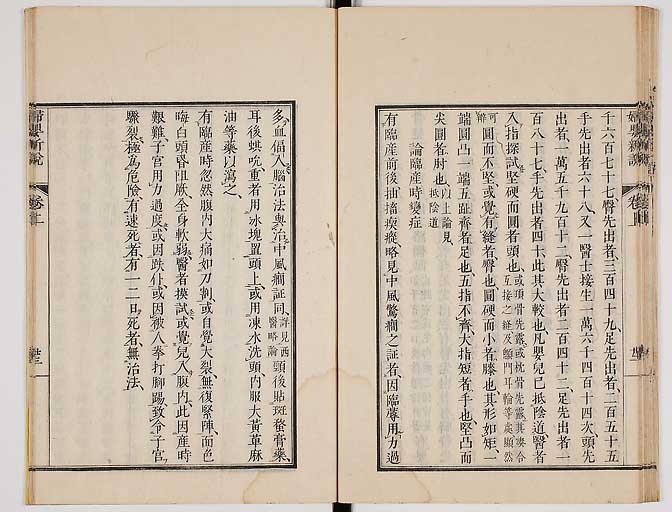 千六百七十七臀先出者三百四十九足先出者二百五十五
手先出者六十八又一醫士接生一萬六千四百十四次頭先
出者一萬五千九百十二臀先出者二百四十二足先出者一
百八十七手先出者四十此其大較也凡嬰兒已抵陰道醫者
入指探試堅硬而圓者頭也或頂骨先露或枕骨先露其湊合互接之縫及顖門耳輪等處顯然可辨
圓而不堅或覺有縫者臀也圓硬而小者膝也其形如矩一
端圓凸一端五趾齊者足也五指不齊大指短者手也堅凸而
尖圓者肘也以上論見抵陰道
論臨產時變症
有臨產前後抽搐瘈瘲略見中風驚癇之証者因臨蓐用力過
多血偪入腦治法與治中風癇証同詳見西醫略論頭後貼斑蝥膏藥
耳後蜞吮重者用冰塊置頭上或用凍水洗頭內服大黃萆麻
油等藥以瀉之
有臨產時忽然腹內大痛如刀割或自覺大裂無復緊陣面色
晦白頭昏阻厥全身軟弱醫者摸試或覺兒入腹內此因產時
艱難子宮用力過度或因跌仆或因被人拳打腳踢致令子宮
驟裂極為危險有速死者有一二日死者無治法
婦嬰新說
卷上
婦嬰新說